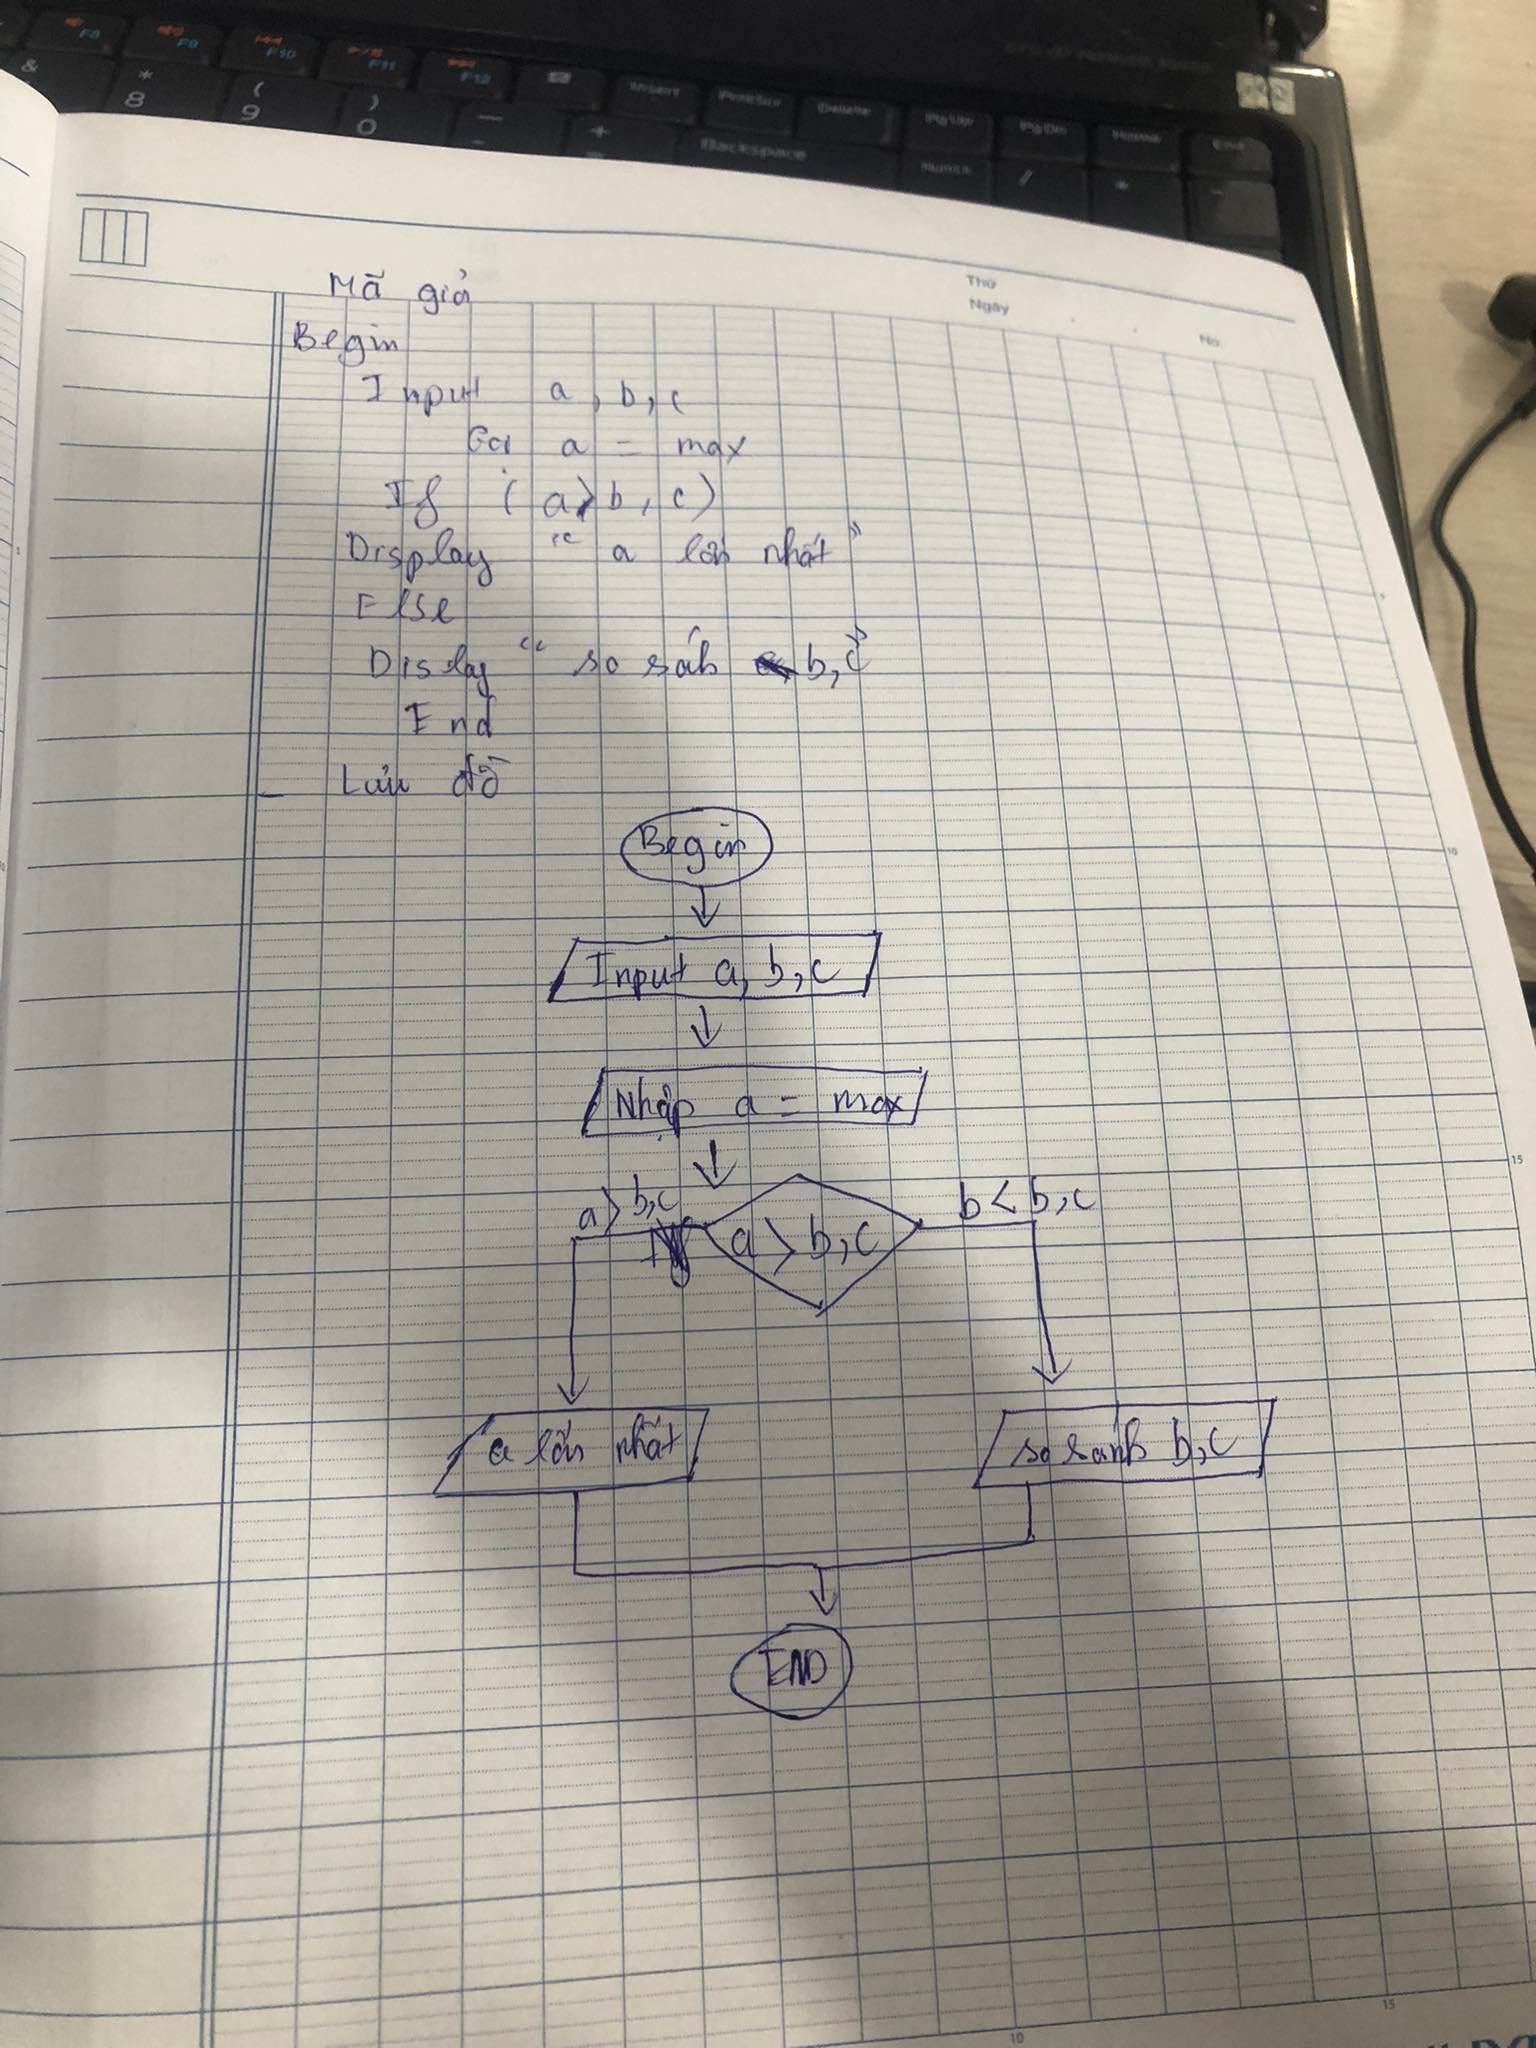 F8
F9
F10
F11
F12
&
*
8
(
9
)
0
—
-
+
=
Insert
PrntScr
Delete
PgUp
PgDn
Home
End
Backspace
NumLk
/
*
-
Thứ
Ngày
No
Mã giả
Begin
Input a, b, c
Gọi a = max
If (a > b, c)
Display "a lớn nhất"
Else
Display "so sánh b, c"
End
- Lưu đồ
Begin
Input a, b, c
Nhập a = max
a > b, c
a > b, c
b < b, c
a lớn nhất
so sánh b, c
END
5
10
15
10
15